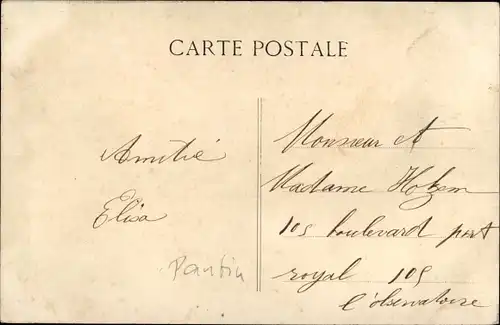 CARTE POSTALE
Amitié
Elisa
Pantin
Monsieur et
Madame
105 boulevard port
royal 105
l'observatoire